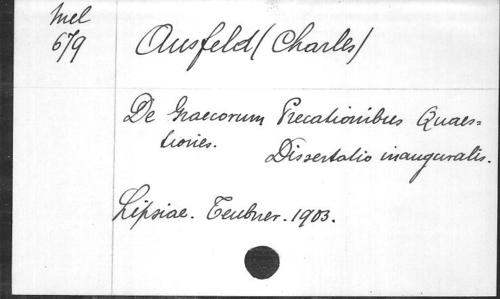 Mel
679
Ausfeld (Charles)
De Graecorum Precationibus Quaes=
tiones.
Dissertatio inauguralis.
Lipsiae. Teubner. 1903.